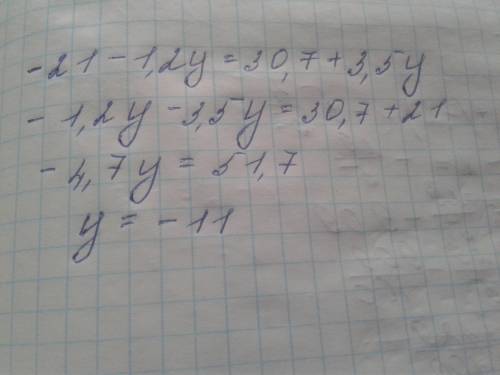 -21-1,2y=30,7+3,5y
-1,2y-3,5y=30,7+21
-4,7y=51,7
y=-11